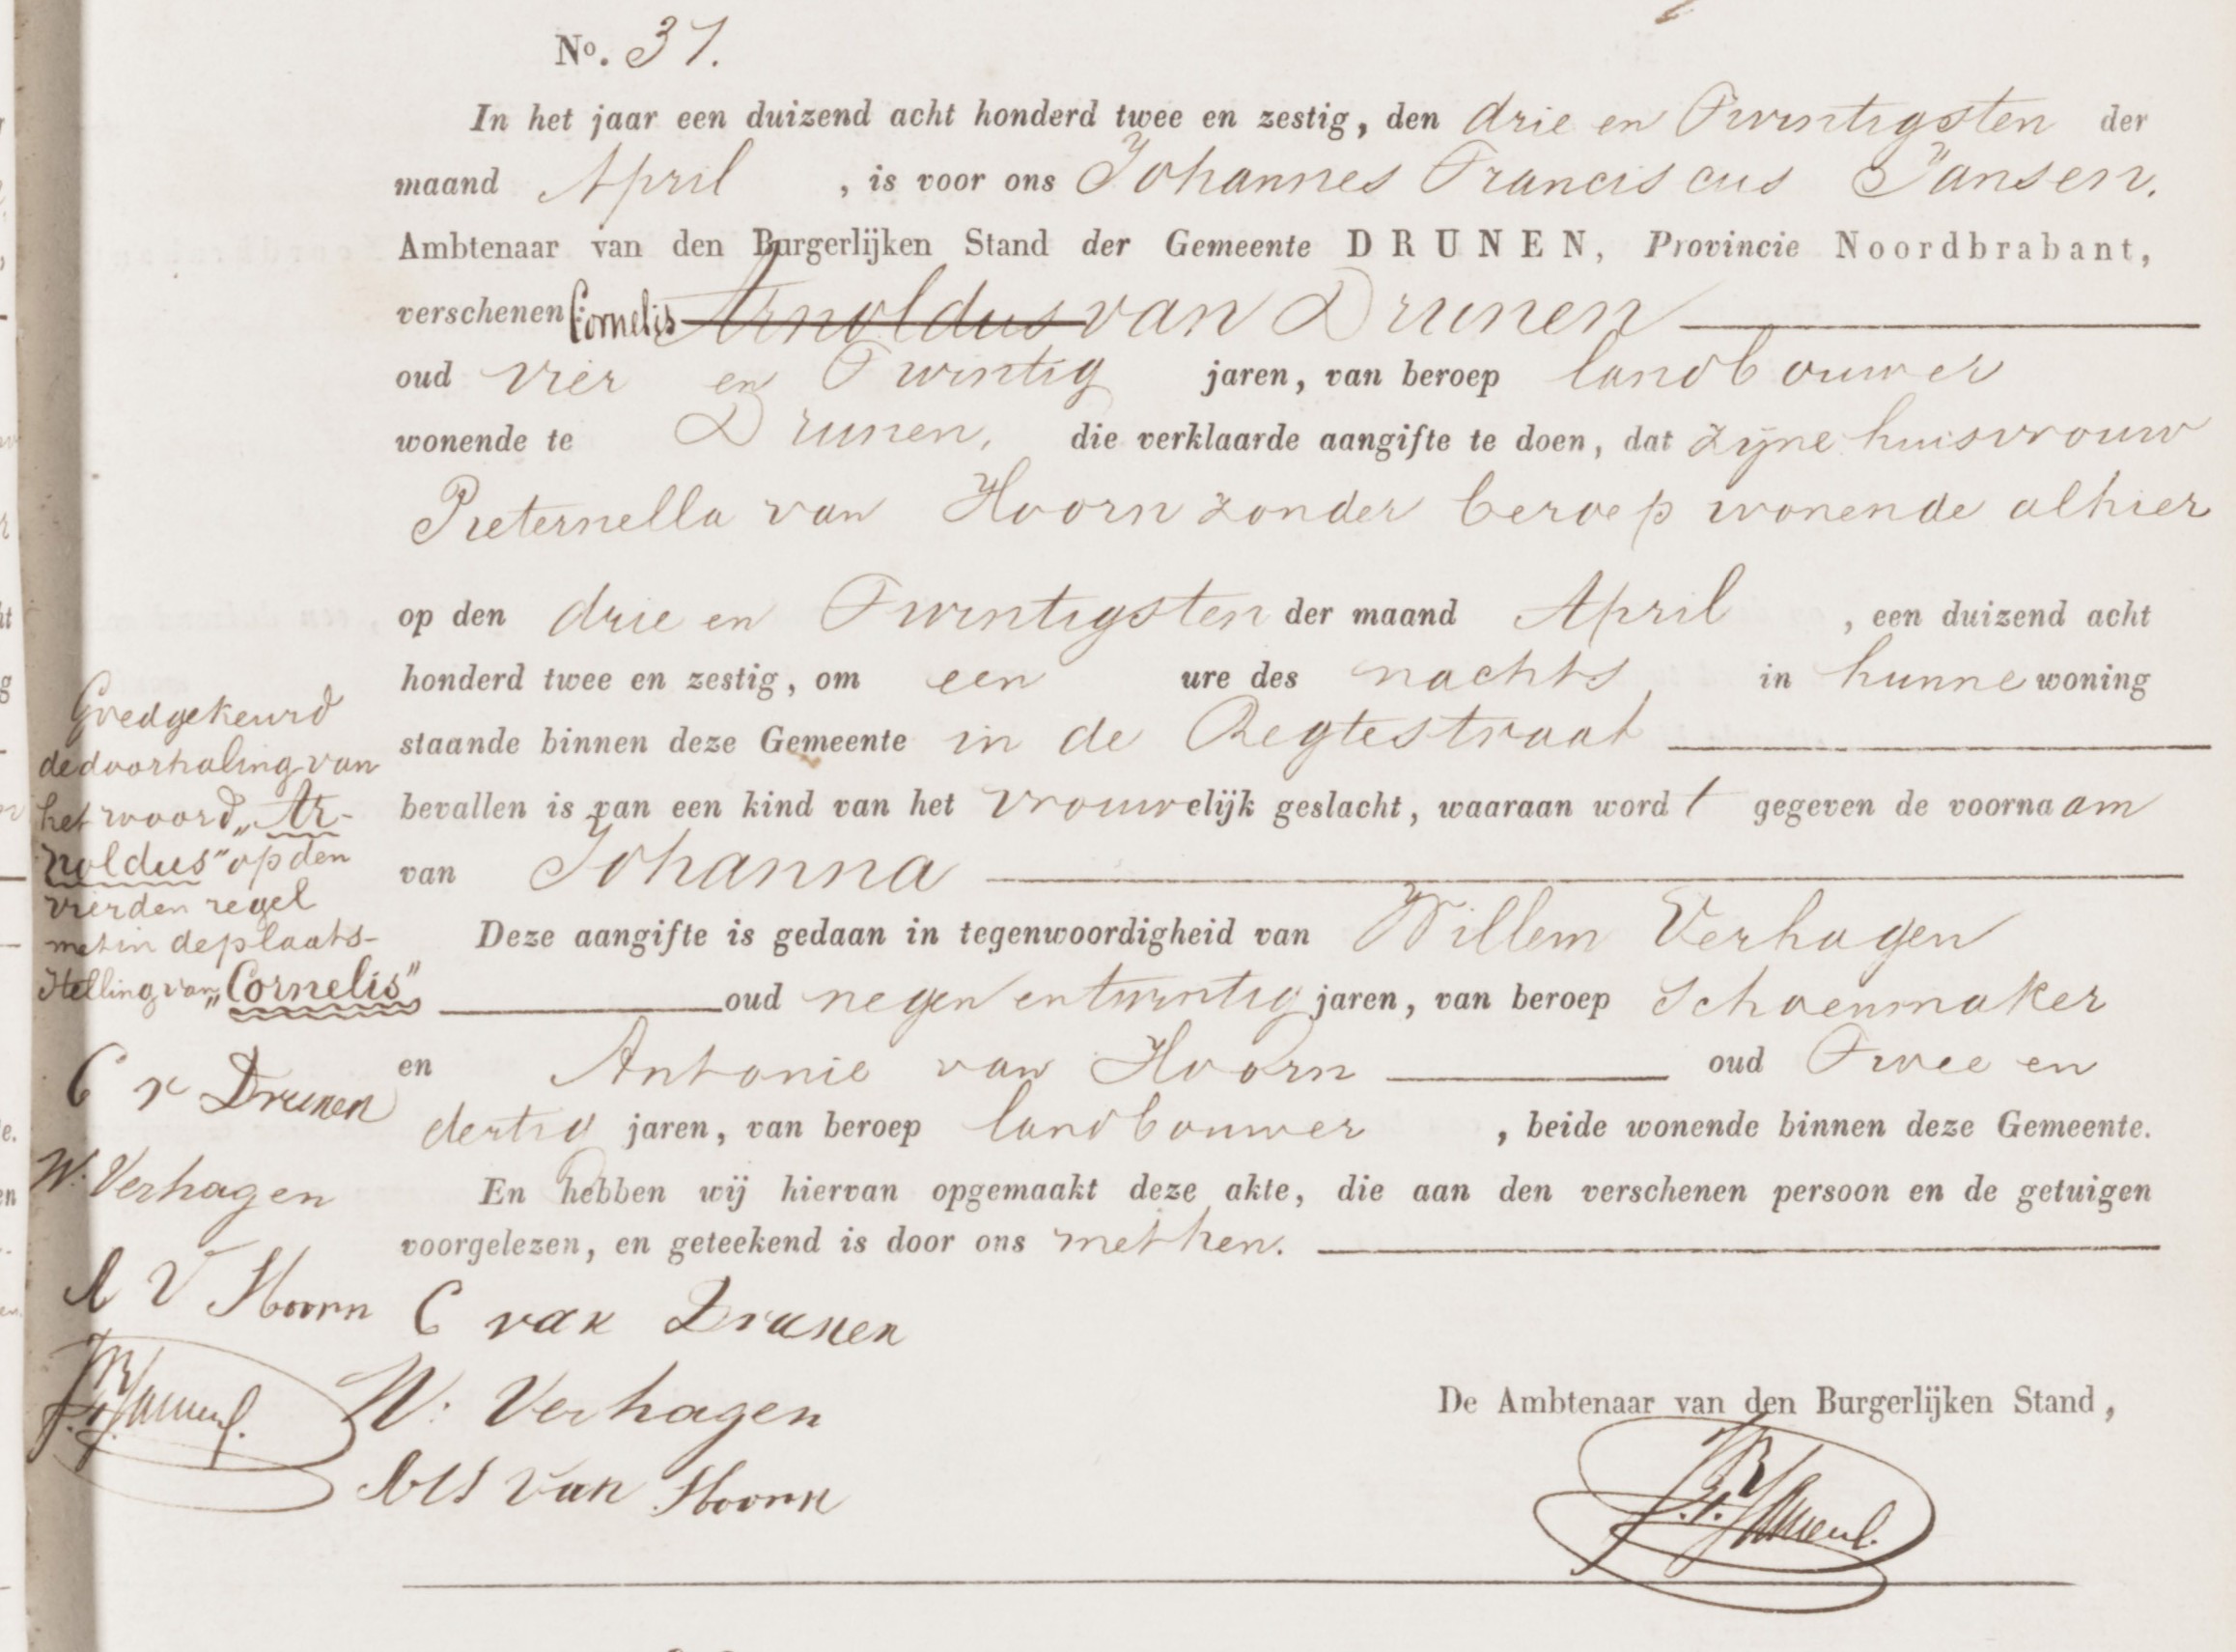 No. 37.
In het jaar een duizend acht honderd twee en zestig, den drie en Twintigsten der
maand April , is voor ons Johannes Franciscus Jansen.
Ambtenaar van den Burgerlijken Stand der Gemeente DRUNEN, Provincie Noordbrabant,
verschenen: Cornelis Arnoldus van Drunen
oud vier en Twintig jaren, van beroep landbouwer
wonende te Drunen, die verklaarde aangifte te doen, dat zijne huisvrouw
Pieternella van Hoorn zonder beroep wonende alhier
op den drie en Twintigsten der maand April , een duizend acht
honderd twee en zestig, om een ure des nachts, in hunne woning
staande binnen deze Gemeente in de Regtestraat
bevallen is van een kind van het vrouwelijk geslacht, waaraan wordt gegeven de voornaam
van Johanna
Deze aangifte is gedaan in tegenwoordigheid van Willem Verhagen
oud negen en twintig jaren, van beroep Schoenmaker
en Antonie van Hoorn oud Twee en
dertig jaren, van beroep landbouwer , beide wonende binnen deze Gemeente.
En hebben wij hiervan opgemaakt deze akte, die aan den verschenen persoon en de getuigen
voorgelezen, en geteekend is door ons met hen.
Goedgekeurd
de doorhaling van
het woord „Ar-
noldus" op den
vierden regel
met in de plaats-
stelling van „Cornelis"
C v Drunen
W. Verhagen
A V Hoorn
C van Drunen
W. Verhagen
van Hoorn
De Ambtenaar van den Burgerlijken Stand,